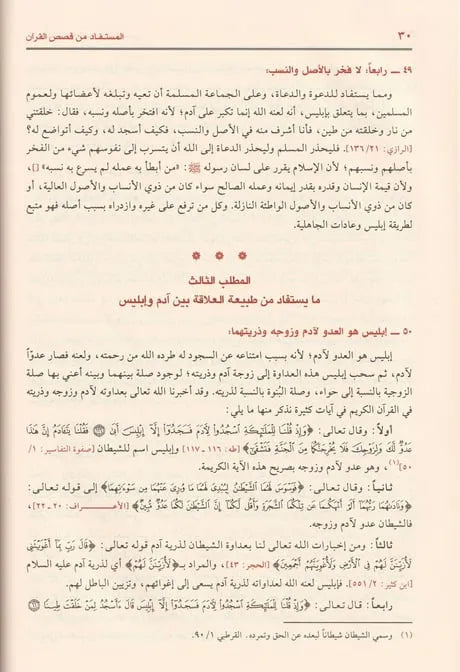 ٣٠
المستفاد من قصص القرآن
٤٩ ــ رابعاً: لا فخر بالأصل والنسب:
ومما يستفاد للدعوة والدعاة، وعلى الجماعة المسلمة أن تعيه وتبلغه لأعضائها ولعموم
المسلمين، بما يتعلق بإبليس، أنه لعنه الله إنما تكبر على آدم؛ لأنه افتخر بأصله ونسبه، فقال: خلقتني
من نار وخلقته من طين، فأنا أشرف منه في الأصل والنسب، فكيف أسجد له، وكيف أتواضع له؟
[الرازي: ١٣٦/٢١]. فليحذر المسلم وليحذر الدعاة إلى الله أن يتسرب إلى نفوسهم شيء من الفخر
بأصلهم ونسبهم؛ لأن الإسلام يقرر على لسان رسوله ﷺ: «من أبطأ به عمله لم يسرع به نسبه» []،
ولأن قيمة الإنسان وقدره بقدر إيمانه وعمله الصالح سواء كان من ذوي الأنساب والأصول العالية، أو
كان من ذوي الأنساب والأصول الواطئة النازلة. وكل من ترفع على غيره وازدراه بسبب أصله فهو متبع
لطريقة إبليس وعادات الجاهلية.
* * *
المطلب الثالث
ما يستفاد من طبيعة العلاقة بين آدم وإبليس
٥٠ ــ إبليس هو العدو لآدم وزوجه وذريتهما:
إبليس هو العدو لآدم؛ لأنه بسبب امتناعه عن السجود له طرده الله من رحمته، ولعنه فصار عدوّاً
لآدم، ثم سحب إبليس هذه العداوة إلى زوج آدم وذريته؛ لوجود صلة بينهما وبينه أعني بها صلة
الزوجية بالنسبة إلى حواء، وصلة البُنوة بالنسبة لذريته. وقد أخبرنا الله تعالى بعداوته لآدم وزوجه وذريته
في القرآن الكريم في آيات كثيرة نذكر منها ما يلي:
أولاً: وقال تعالى: ﴿وَإِذْ قُلْنَا لِلْمَلَائِكَةِ اسْجُدُوا لِآدَمَ فَسَجَدُوا إِلَّا إِبْلِيسَ أَبَى ۝ فَقُلْنَا يَا آدَمُ إِنَّ هَٰذَا
عَدُوٌّ لَّكَ وَلِزَوْجِكَ فَلَا يُخْرِجَنَّكُمَا مِنَ الْجَنَّةِ فَتَشْقَىٰ﴾ [طه: ١١٦ ــ ١١٧] وإبليس اسم للشيطان [صفوة التفاسير: ١/
٥٠](١)، وهو عدو لآدم وزوجه بصريح هذه الآية الكريمة.
ثانياً: وقال تعالى: ﴿فَوَسْوَسَ لَهُمَا الشَّيْطَانُ لِيُبْدِيَ لَهُمَا مَا وُورِيَ عَنْهُمَا مِن سَوْآتِهِمَا﴾ إلى قوله تعالى:
﴿وَنَادَاهُمَا رَبُّهُمَا أَلَمْ أَنْهَكُمَا عَن تِلْكُمَا الشَّجَرَةِ وَأَقُل لَّكُمَا إِنَّ الشَّيْطَانَ لَكُمَا عَدُوٌّ مُّبِينٌ﴾ [الأعراف: ٢٠ ــ ٢٢]،
فالشيطان عدو لآدم وزوجه.
ثالثاً: ومن إخباراته الله تعالى لنا بعداوة الشيطان لذرية آدم قوله تعالى: ﴿قَالَ رَبِّ بِمَا أَغْوَيْتَنِي
لَأُزَيِّنَنَّ لَهُمْ فِي الْأَرْضِ وَلَأُغْوِيَنَّهُمْ أَجْمَعِينَ﴾ [الحجر: ٤٣]، والمراد بـ﴿لَأُزَيِّنَنَّ لَهُمْ﴾ أي لذرية آدم عليه السلام
[ابن كثير: ٥٥١/٢]. فإبليس لعنه الله لعداواته لذرية آدم يسعى إلى إغوائهم، وتزيين الباطل لهم.
رابعاً: قال تعالى: ﴿وَإِذْ قُلْنَا لِلْمَلَائِكَةِ اسْجُدُوا لِآدَمَ فَسَجَدُوا إِلَّا إِبْلِيسَ قَالَ أَأَسْجُدُ لِمَنْ خَلَقْتَ طِينًا ۝
(١) وسمي الشيطان شيطاناً لبعده عن الحق وتمرده. القرطبي ٩٠/١.